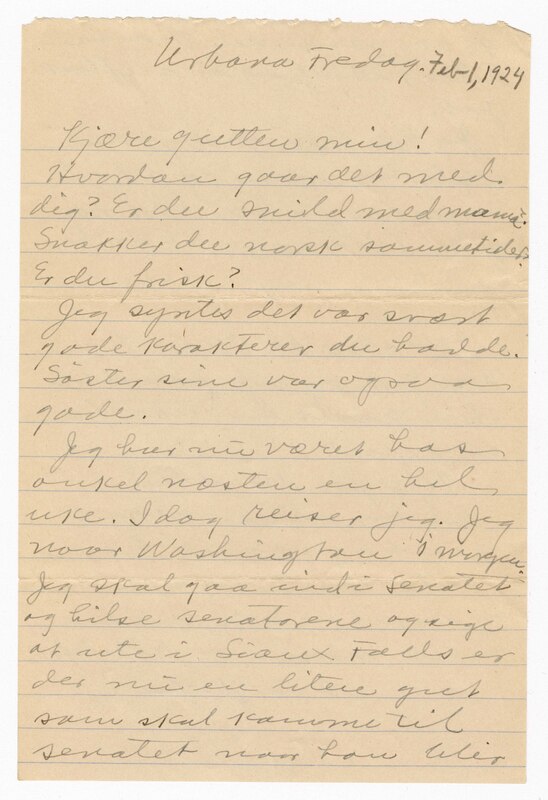 Urbana Fredag. Feb-1, 1924
Kjære gutten min!
Hvordan gaar det med
dig? Er du snild med mama.
Snakker du norsk sommetider?
Er du frisk?
Jeg syntes det var svært
gode karakterer du hadde.
Söster sine var ogsaa
gode.
Jeg har nu været hos
onkel næsten en hel
uke. I dag reiser jeg. Jeg
naar Washington i morgen.
Jeg skal gaa ind i Senatet
og hilse senatorene og sige
at ute i Sioux Falls er
der nu en liten gut
som skal komme til
senatet naar han blir